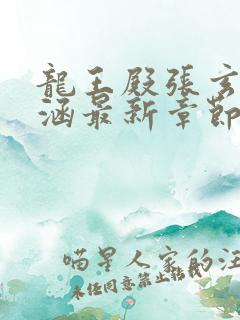 龍王殿張玄
涵最新章節
喵星人家的汪
未经同意禁止转载